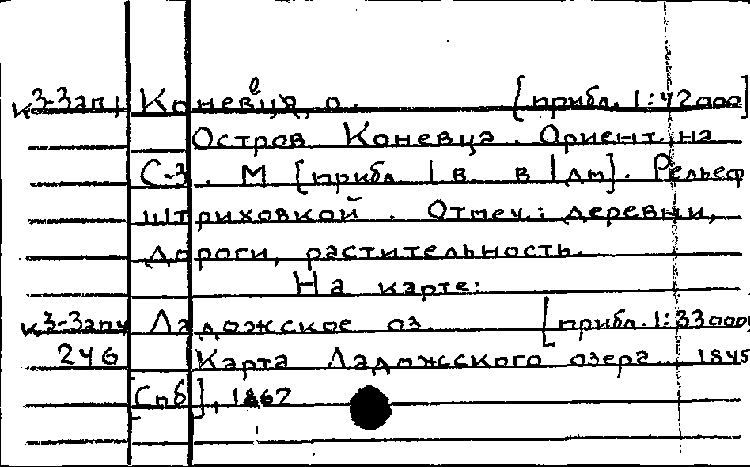 к3-Зап1 Коневец, о. [прибл. 1:42000]
Остров Коневца. Ориент. на
С-З. М [прибл 1 в. в 1 дм]. Рельеф
штриховкой. Отмеч.: деревни,
дороги, растительность.
На карте:
к3-Зап4 Ладожское оз. [прибл. 1:33000]
246 Карта Ладожского озера. 1845
[Спб], 1867